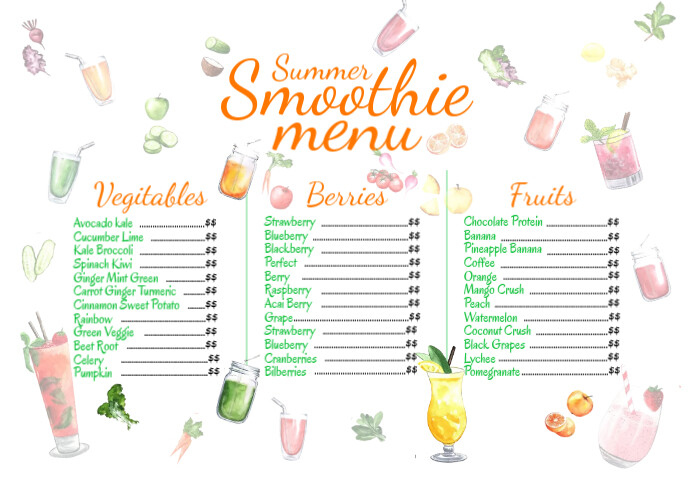 Summer
Smoothie
menu
Vegitables
Avocado kale ........................$$
Cucumber Lime ........................$$
Kale Broccoli ........................$$
Spinach Kiwi ........................$$
Ginger Mint Green ........................$$
Carrot Ginger Turmeric ........................$$
Cinnamon Sweet Potato ........................$$
Rainbow ........................$$
Green Veggie ........................$$
Beet Root ........................$$
Celery ........................$$
Pumpkin ........................$$
Berries
Strawberry ........................$$
Blueberry ........................$$
Blackberry ........................$$
Perfect ........................$$
Berry ........................$$
Raspberry ........................$$
Acai Berry ........................$$
Grape........................$$
Strawberry ........................$$
Blueberry ........................$$
Cranberries ........................$$
Bilberries ........................$$
Fruits
Chocolate Protein ........................$$
Banana ........................$$
Pineapple Banana ........................$$
Coffee ........................$$
Orange ........................$$
Mango Crush ........................$$
Peach ........................$$
Watermelon ........................$$
Coconut Crush ........................$$
Black Grapes ........................$$
Lychee ........................$$
Pomegranate ........................$$